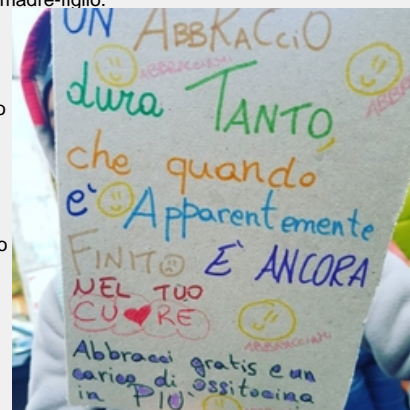 madre-figlio.
o
o
UN ABBRACCIO
ABBRACCIAMI
dura TANTO,
ABBR
che quando
e' Apparentemente
FINITO E' ANCORA
NEL TUO
CUORE
ABBRACCIAMI
Abbracci gratis e un
carico di ossitocina
in PIÙ